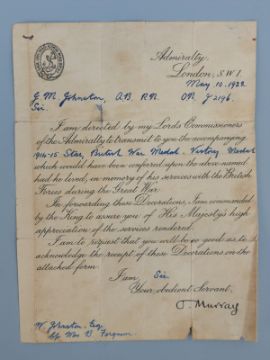 Admiralty,
London, S.W.1
May 10. 1922.
J. M. Johnston, A.B. R.N. ON J 2196.
Sir
I am directed by my Lords Commissioners
of the Admiralty to transmit to you the accompanying
1914-15 Star, British War Medal, Victory Medal
which would have been conferred upon the above named
had he lived, in memory of his services with the British
Forces during the Great War.
In forwarding these Decorations, I am commanded
by the King to assure you of His Majesty's high
appreciation of the services rendered.
I am to request that you will be so good as to
acknowledge the receipt of these Decorations on the
attached form.
I am Sir
Your obedient Servant,
O. Murray
W. Johnston, Esq.
Ferguson